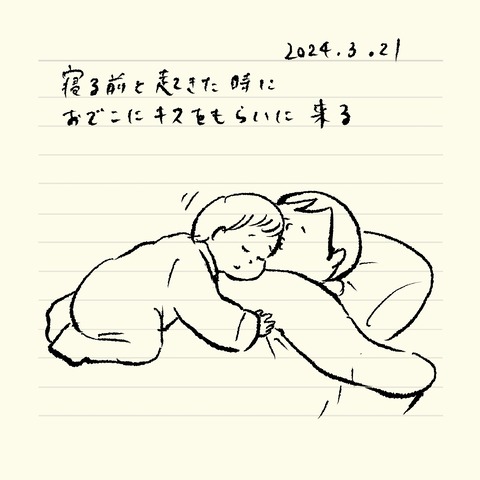 2024.3.21
寝る前と起きた時に
おでこにキスをもらいに来る